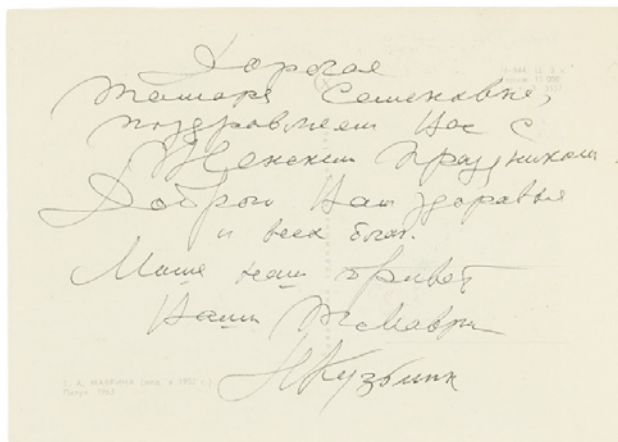 Дорогая
Тамара Семеновна,
поздравляем Вас с
Женским Праздником.
Доброго Вам здоровья
и всех благ.
Маше наш привет
Ваши Т Маврина
Н Кузьмин
Т. А. МАВРИНА (род. в 1902 г.)
1963